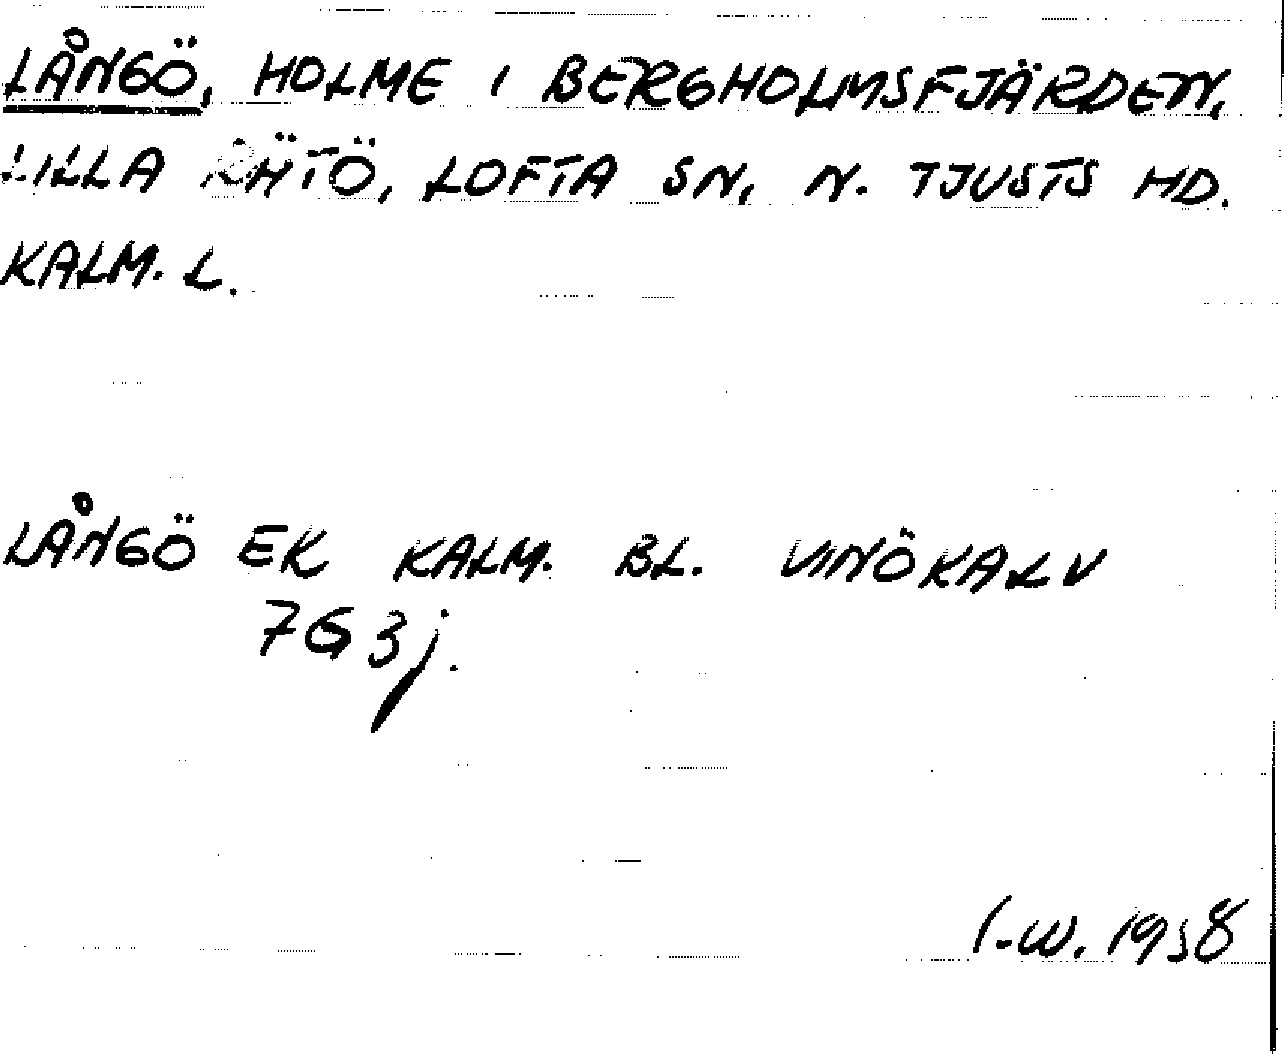 LÅNGÖ, HOLME I BERGHOLMSFJÄRDEN,
LILLA RÄTÖ, LOFTA SN, N. TJUSTS HD.
KALM. L.
LÅNGÖ EK KALM. BL. VINÖKALV
7G3j.
I-W. 1958